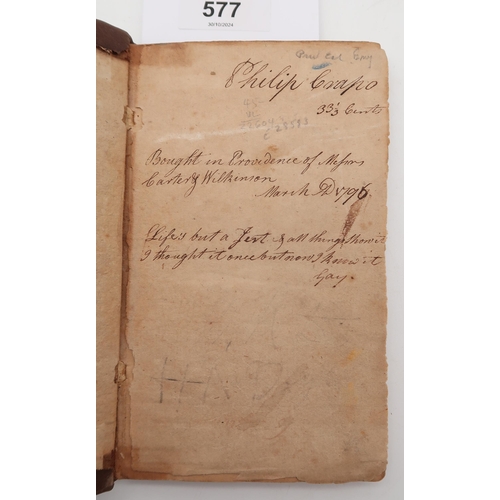 577
30/10/2024
Philip Crapo
33⅓ Cents
Bought in Providence of Messrs
Carter & Wilkinson
March AD 1796
Life is but a Jest & all things show it
I thought it once but now I know it
Gay